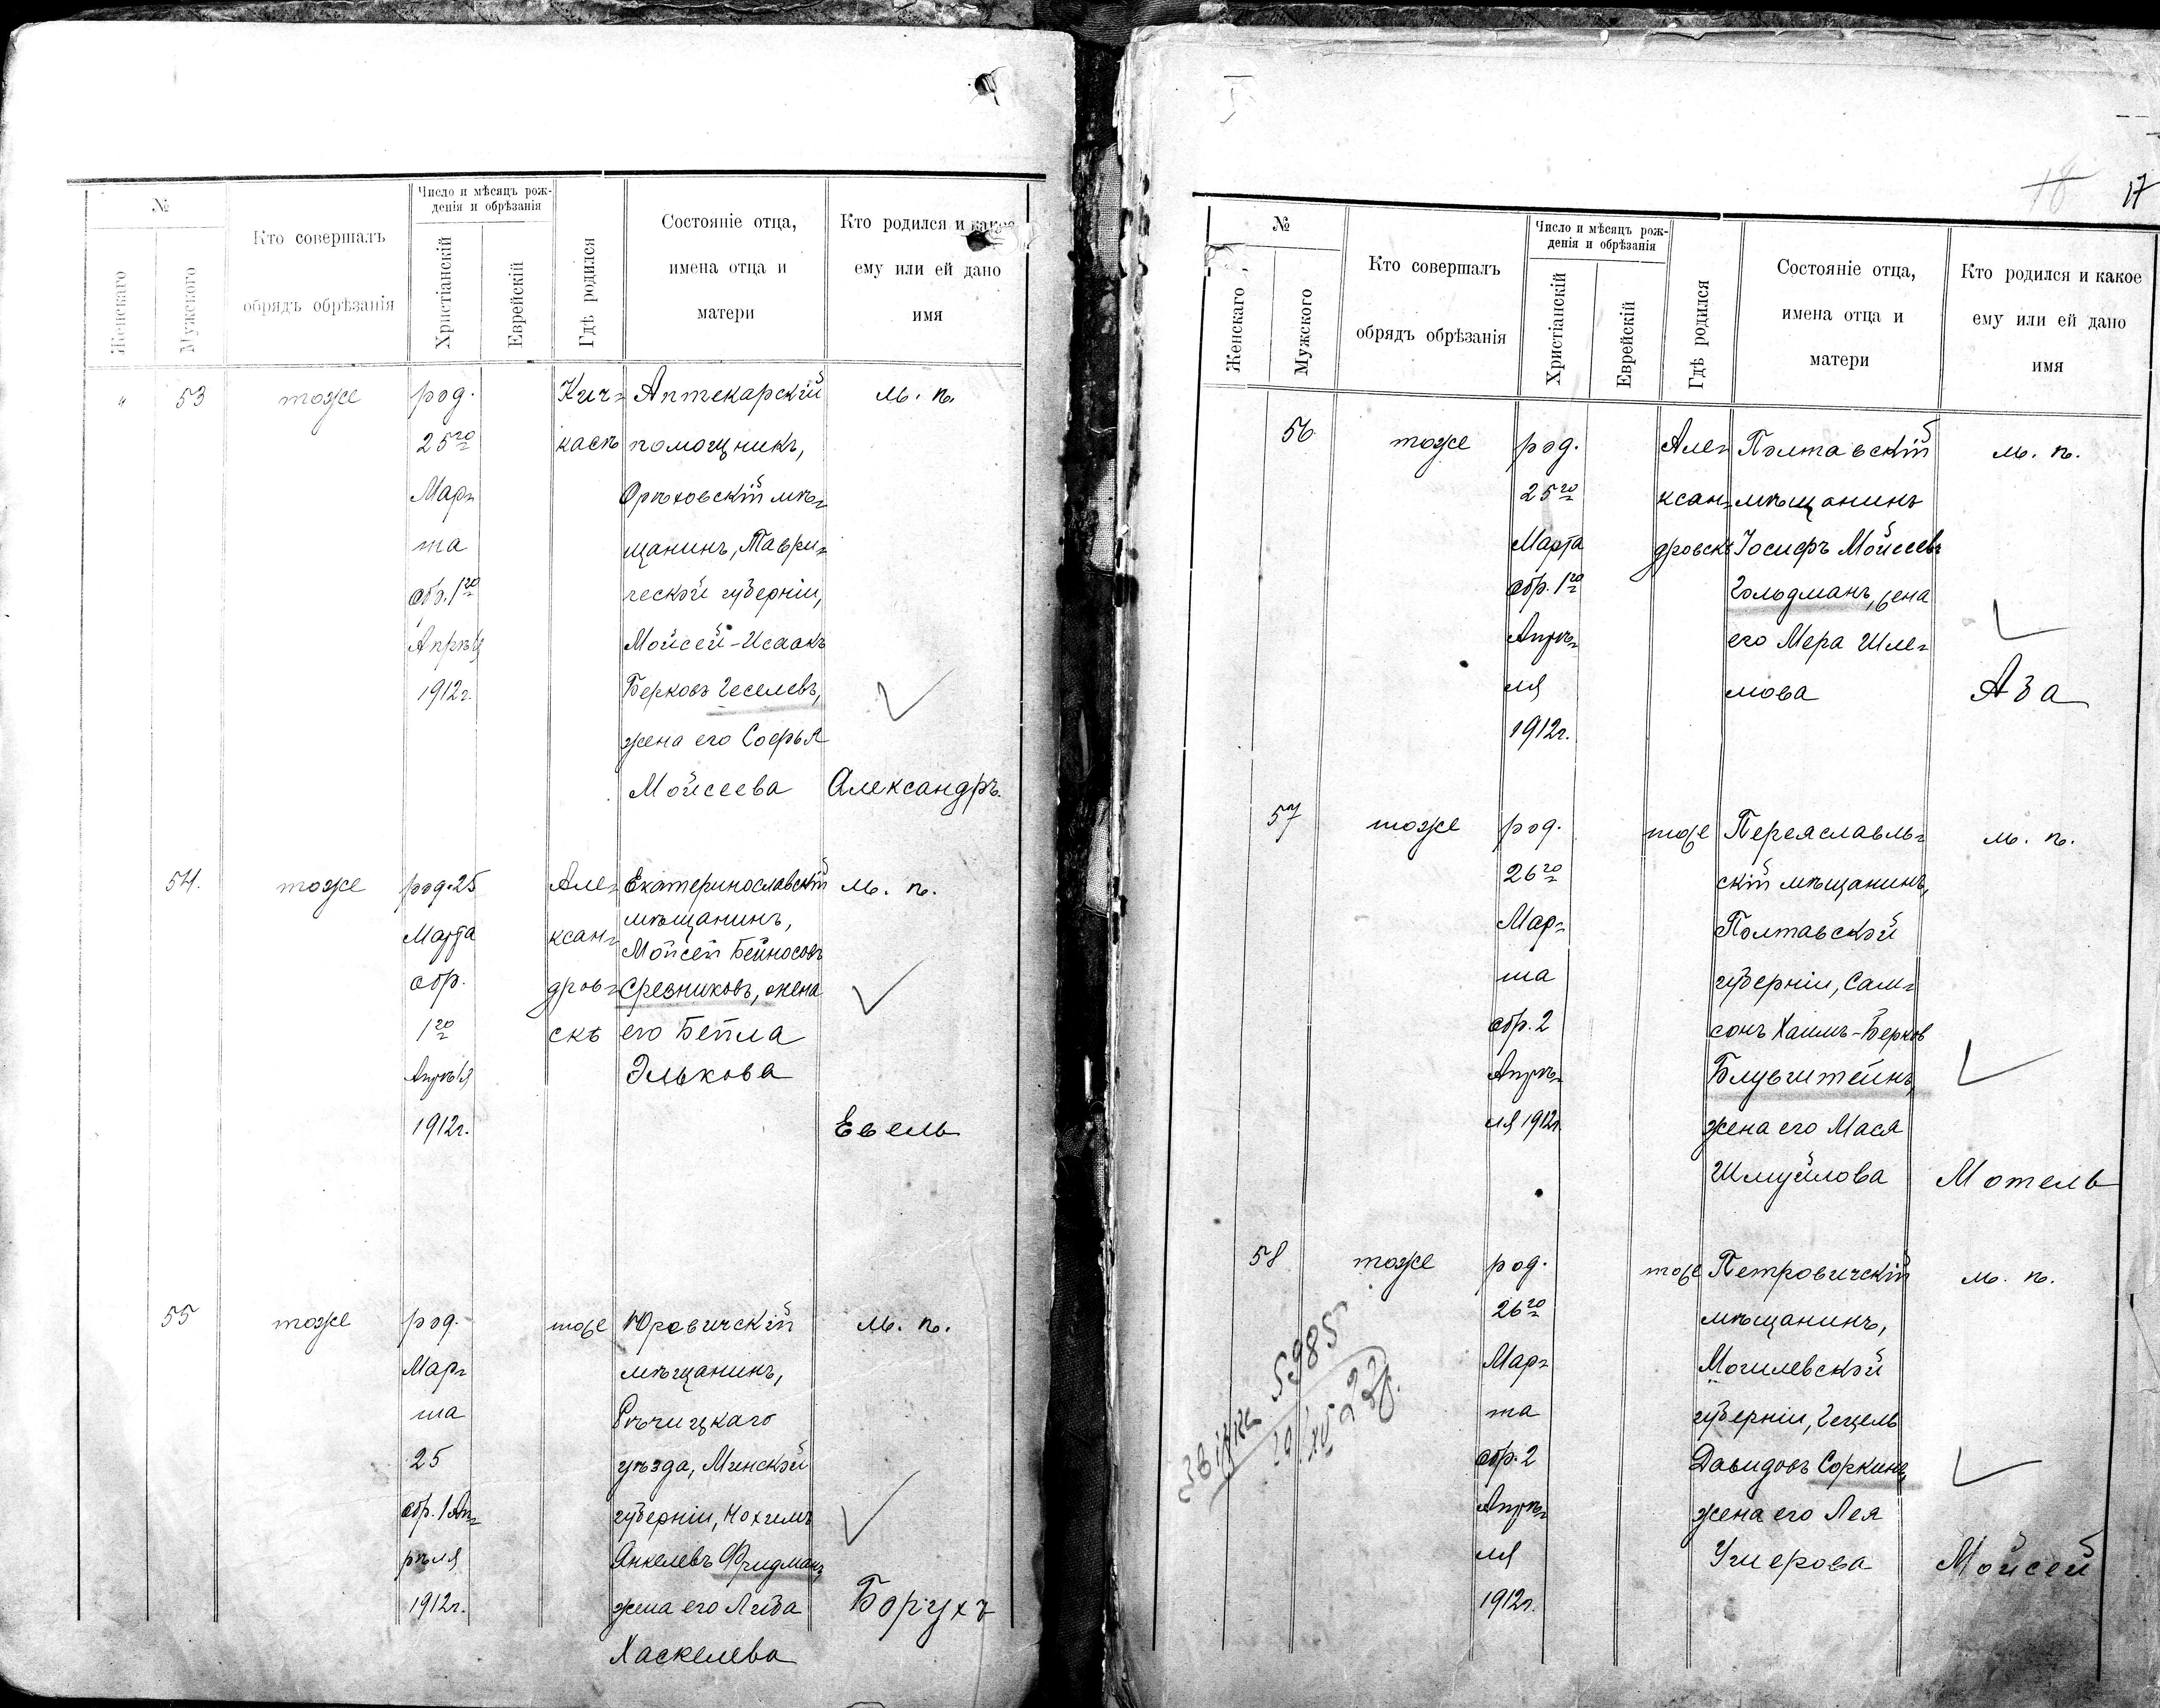 №
Женскаго
Мужского
Кто совершалъ
обрядъ обрѣзанія
Число и мѣсяцъ рож-
денія и обрѣзанія
Христіанскій
Еврейскій
Гдѣ родился
Состояніе отца,
имена отца и
матери
Кто родился и какое
ему или ей дано
имя
„ 53
тоже
род.
25го
Мар-
та
обр. 1го
Апрѣля
1912г.
Кич-
касъ
Аптекарскій
помощникъ,
Орѣховскій мѣ-
щанинъ, Таври-
ческой губерніи,
Мойсей-Исаакъ
Берковъ Геселевъ,
жена его Софья
Мойсеева
м. п.
Александръ.
54.
тоже
род. 25
Марта
обр.
1го
Апрѣля
1912г.
Але-
ксан-
дров-
скѣ
Екатеринославскій
мѣщанинъ,
Мойсей Бейносовъ
Срезниковъ, жена
его Бейла
Элькова
м. п.
Евель
55
тоже
род.
Мар-
та
25
обр. 1 Ап-
рѣля
1912г.
тоже
Юровичскій
мѣщанинъ,
Рѣчицкаго
уѣзда, Минской
губерніи, Нохимъ
Янкелевъ Фридманъ,
жена его Либа
Хаскелева
м. п.
Борухъ
18 17
№
Женскаго
Мужского
Кто совершалъ
обрядъ обрѣзанія
Число и мѣсяцъ рож-
денія и обрѣзанія
Христіанскій
Еврейскій
Гдѣ родился
Состояніе отца,
имена отца и
матери
Кто родился и какое
ему или ей дано
имя
56
тоже
род.
25го
Марта
обр. 1го
Апрѣ-
ля
1912г.
Але-
ксан-
дровскѣ
Полтавскій
мѣщанинъ
Іосифъ Мойсеевъ
Гольдманъ, жена
его Мера Шле-
мова
м. п.
Аза
57
тоже
род.
26го
Мар-
та
обр. 2
Апрѣ-
ля 1912г.
тоже
Переяславль-
скій мѣщанинъ,
Полтавской
губерніи, Сам-
сонъ Хаимъ-Берков
Блувштейнъ,
жена его Мася
Шмуйлова
м. п.
Мотель
58
тоже
род.
26го
Мар-
та
обр. 2
Апрѣ-
ля
1912г.
тоже
Петровичскій
мѣщанинъ,
Могилевской
губерніи, Гецель
Давидовъ Соркинъ,
жена его Лея
Ушерова
м. п.
Мойсей
5985